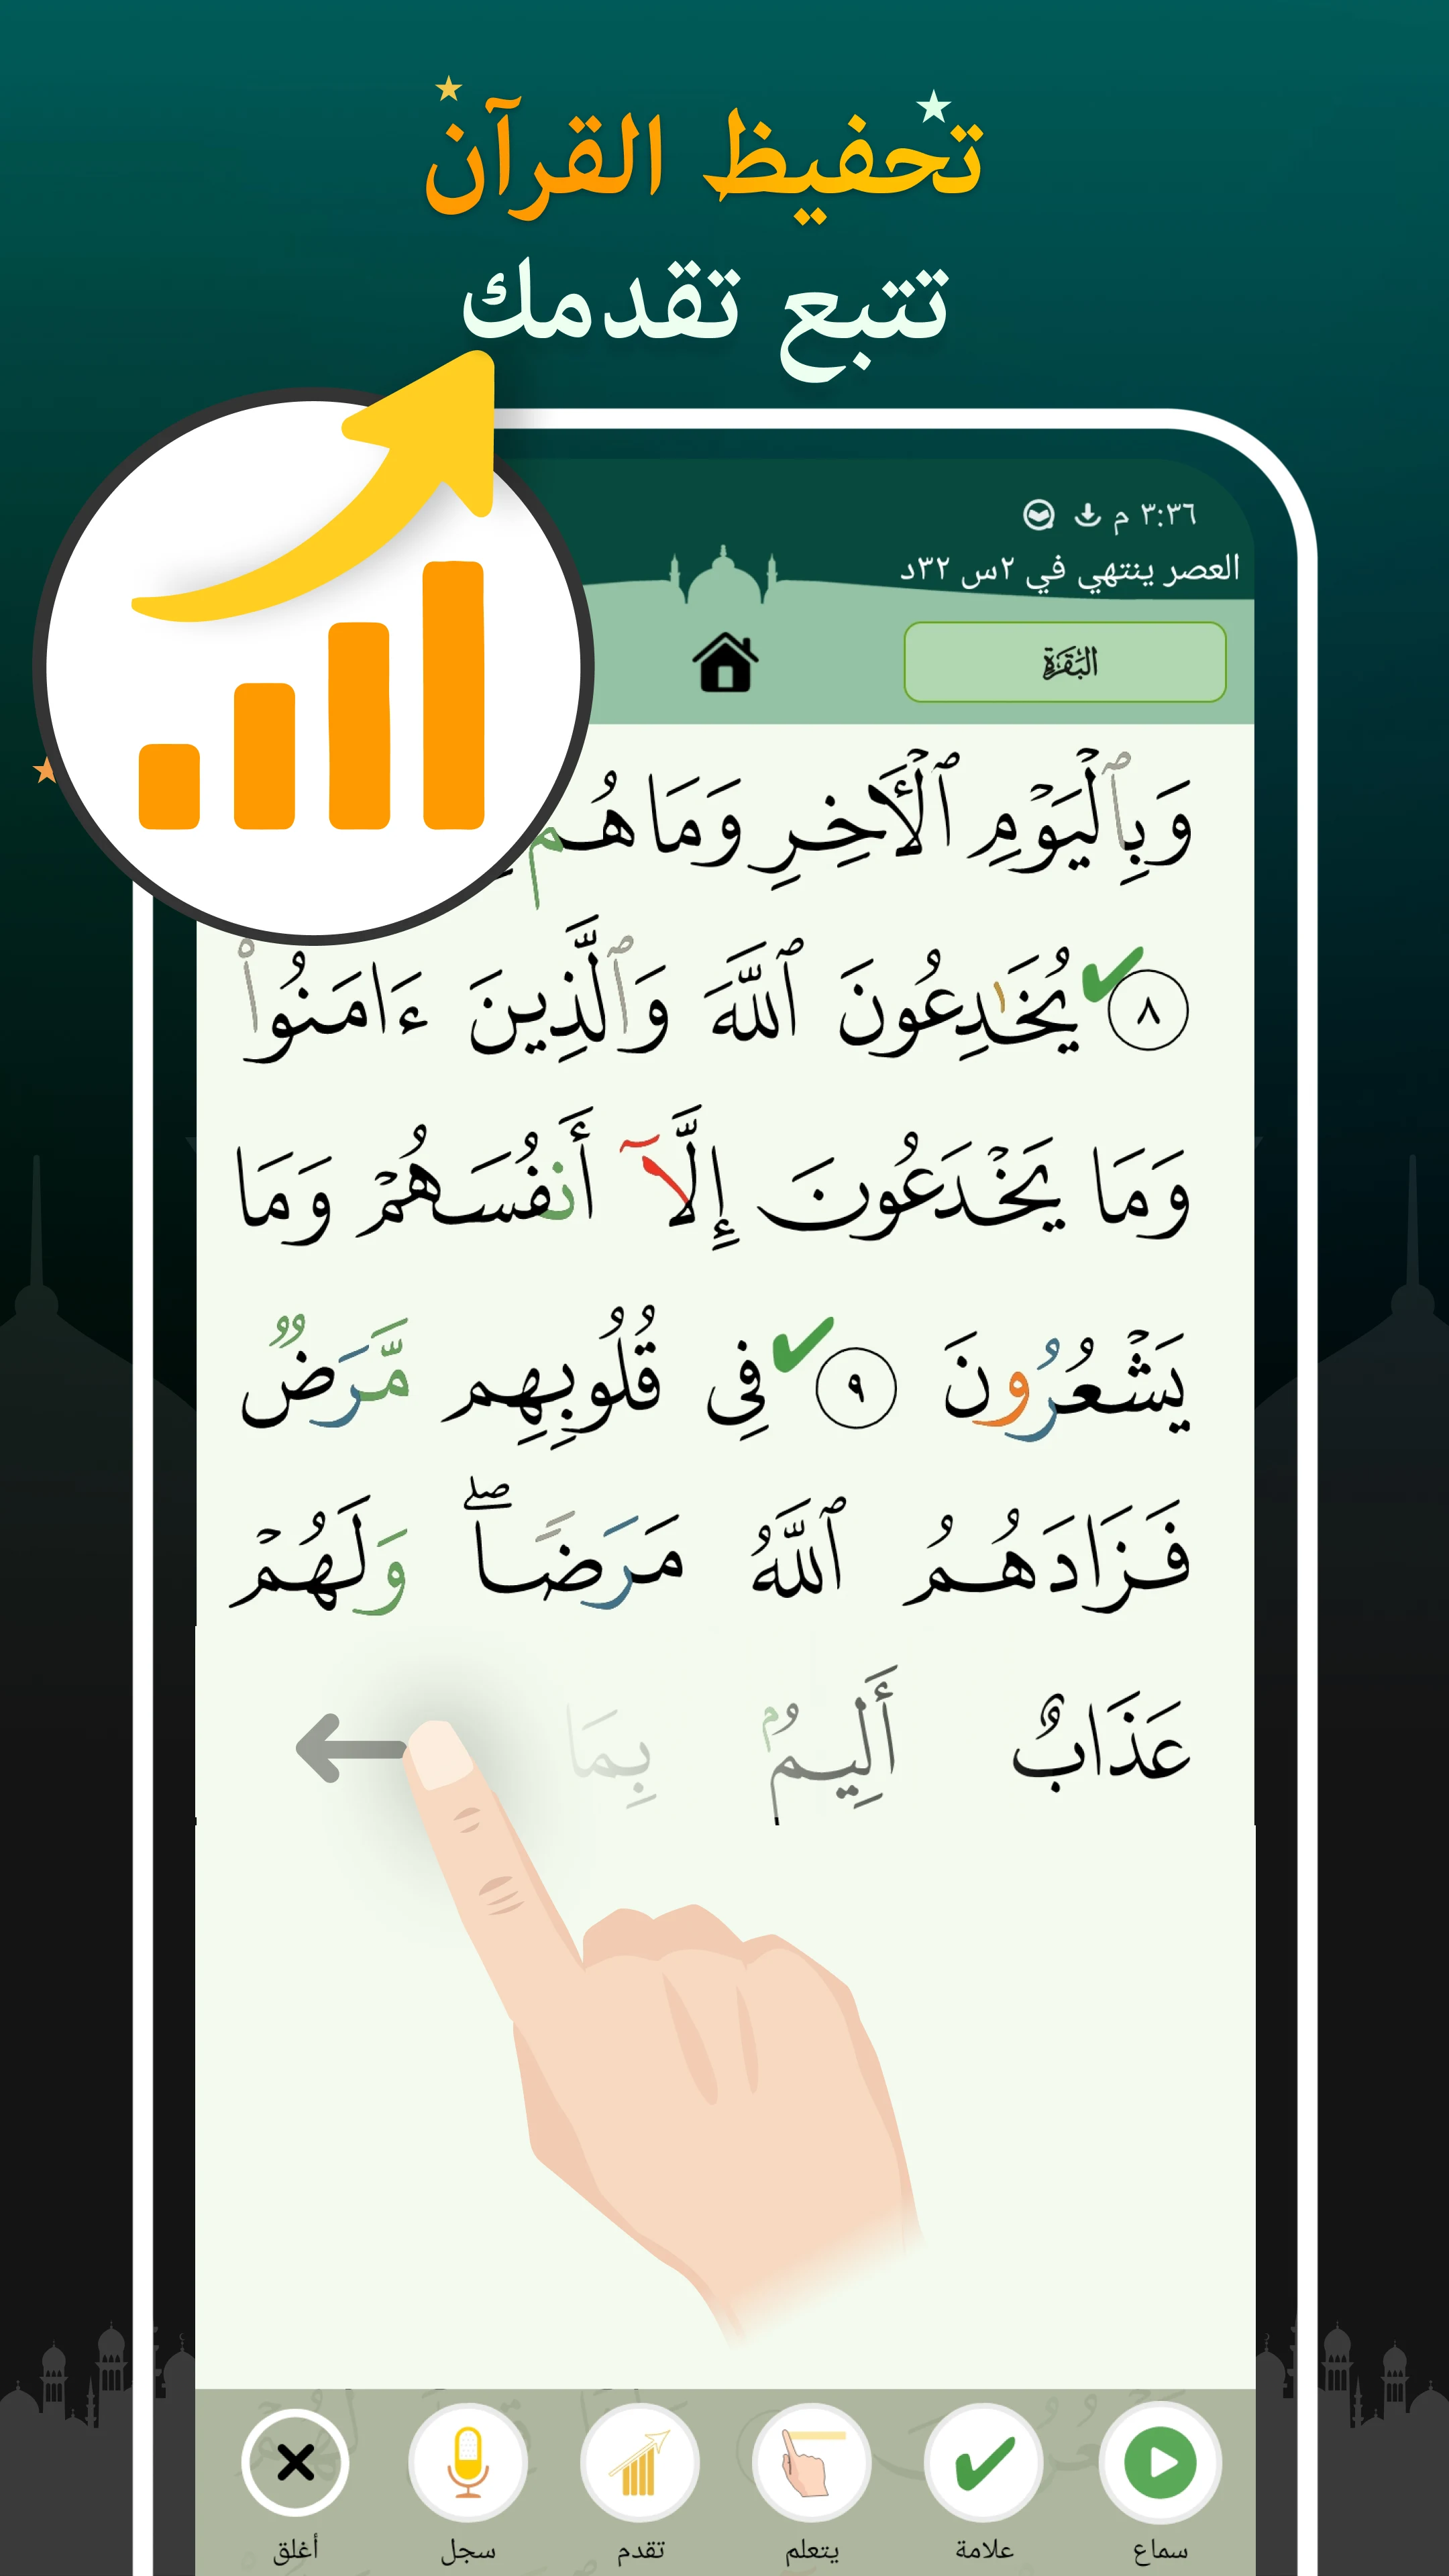 تحفيظ القرآن
تتبع تقدمك
٣:٣٦ م
العصر ينتهي في ٢س ٣٢د
البقرة
وَبِٱلْيَوْمِ ٱلْأٓخِرِ وَمَا هُم
٨ يُخَٰدِعُونَ ٱللَّهَ وَٱلَّذِينَ ءَامَنُوا۟
وَمَا يَخْدَعُونَ إِلَّآ أَنفُسَهُمْ وَمَا
يَشْعُرُونَ ٩ فِى قُلُوبِهِم مَّرَضٌ
فَزَادَهُمُ ٱللَّهُ مَرَضًا ۖ وَلَهُمْ
عَذَابٌ أَلِيمٌۢ بِمَا
سماع
علامة
يتعلم
تقدم
سجل
أغلق